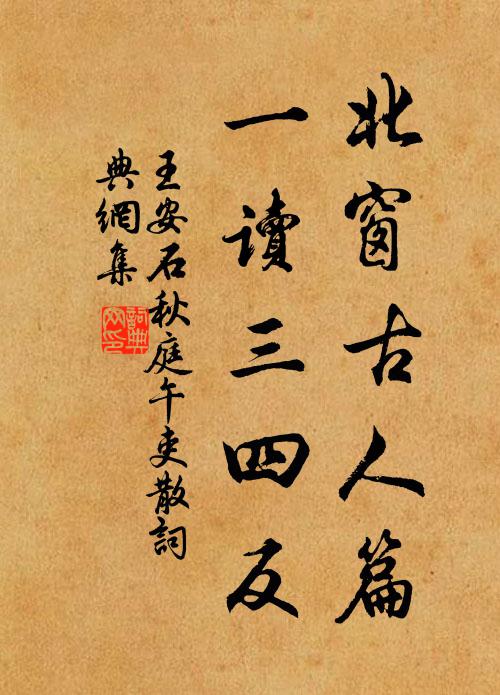 北窗古人篇
一讀三四反
王安石秋庭午吏散詞
典網集
詞典
网印